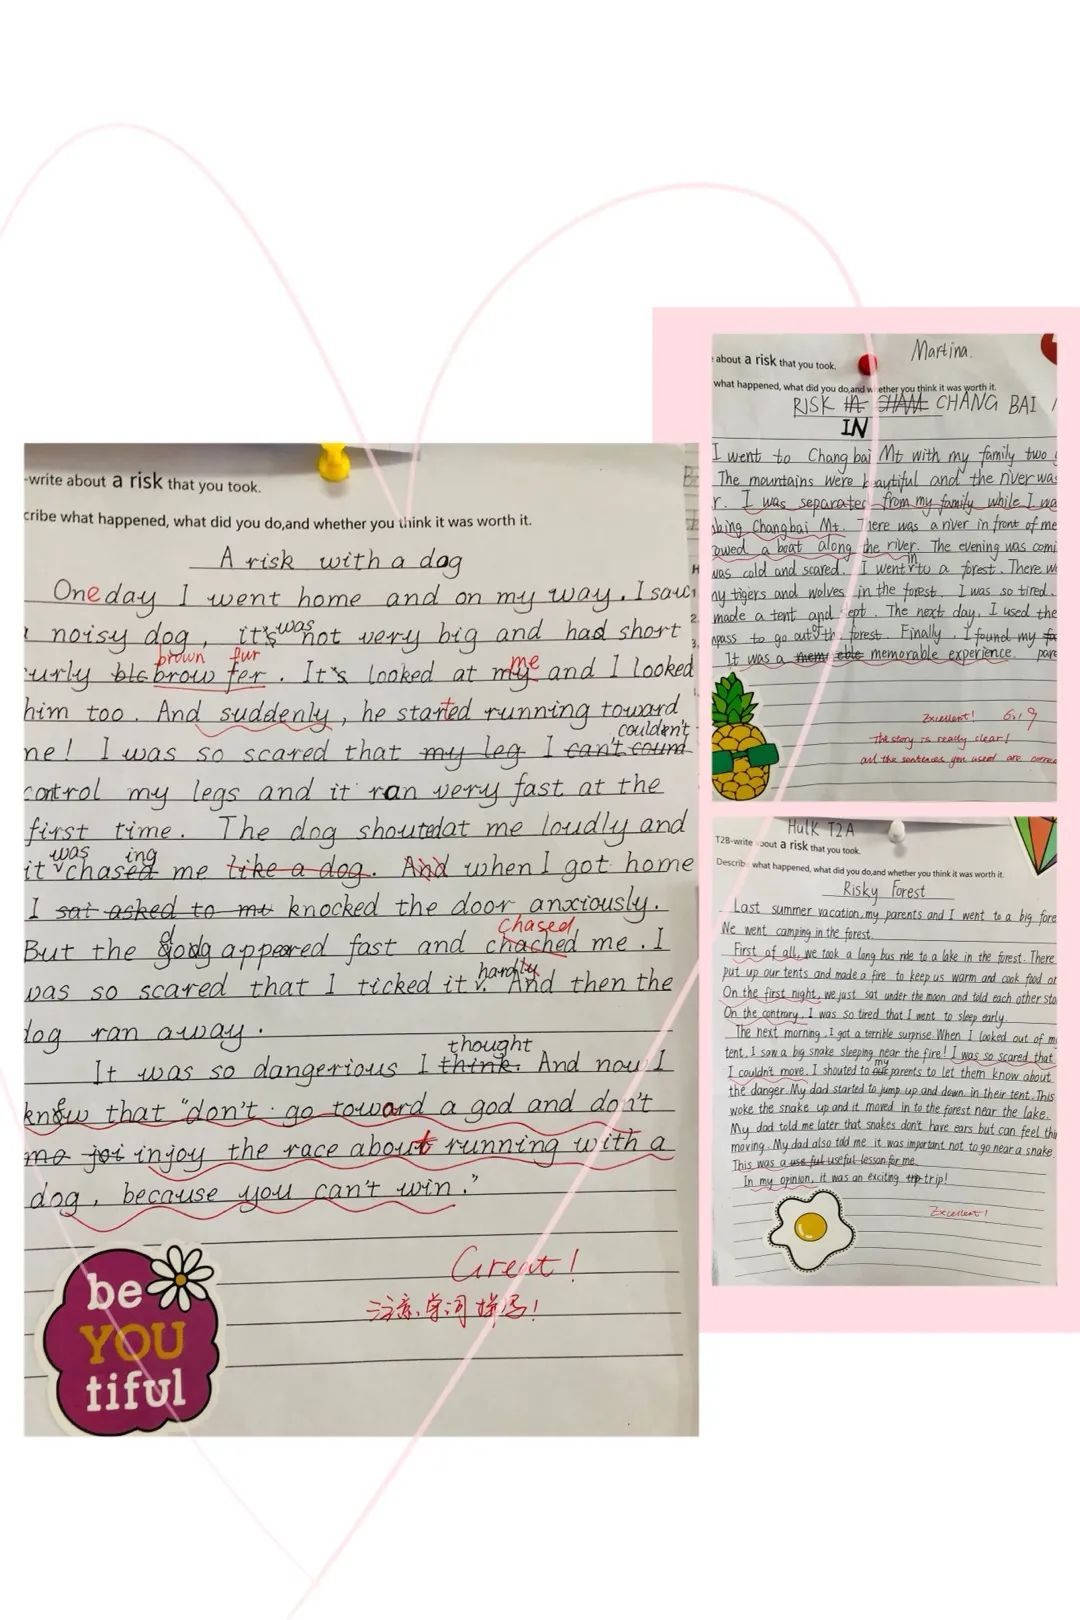 -write about a risk that you took.
cribe what happened, what did you do,and whether you think it was worth it.
A risk with a dog
Oneday I went home and on my way. I saw
noisy dog, it's was not very big and had short
urly blc brow fer. It's looked at my me and I looked
brown fur
him too. And suddenly, he started running toward
me! I was so scared that my leg I can't cound
couldn't
control my legs and it ran very fast at the
first time. The dog shouted at me loudly and
it was chased ing me like a dog. And when I got home
I sat asked to mu knocked the door anxiously.
But the dog appeared fast and chached me. I
chased
was so scared that I ticked it hardly. And then the
dog ran away.
It was so dangerious I think. And now I
thought
know that "don't go toward a god and don't
mo joi injoy the race about running with a
dog, because you can't win."
Great!
注意单词拼写!
be
YOU
tiful
Martina.
about a risk that you took.
what happened, what did you do,and whether you think it was worth it.
RISK IN CHAM CHANG BAI
IN
I went to Changbai Mt with my family two
The mountains were beautiful and the river was
r. I was separated from my family while I wa
bing Changbai Mt. There was a river in front of me
owed a boat along the river. The evening was comi
was cold and scared. I went in to a forest. There w
ny tigers and wolves in the forest. I was so tired.
made a tent and ept. The next day, I used the
mpass to go out of th forest. Finally, I found my fa
It was a mem eble memorable experience. pare
Excellent! 6.19
The story is really clear!
all the sentences you used are correc
Hulk T2A
T2B-write about a risk that you took.
Describ what happened, what did you do,and whether you think it was worth it.
Risky Forest
Last summer vacation, my parents and I went to a big fore
We went camping in the forest.
First of all, we took a long bus ride to a lake in the forest. There
put up our tents and made a fire to keep us warm and cook food or
On the first night, we just sat under the moon and told each other sto
On the contrary, I was so tired that I went to sleep early.
The next morning, I got a terrible surprise. When I looked out of m
tent, I saw a big snake sleeping near the fire! I was so scared that
I couldn't move. I shouted to our my parents to let them know about
the danger. My dad started to jump up and down in their tent. This
woke the snake up and it moved in to the forest near the lake.
My dad told me later that snakes don't have ears but can feel thin
moving. My dad also told me it was important not to go near a snake
This was a use ful useful lesson for me.
In my opinion, it was an exciting trip trip!
Excellent!